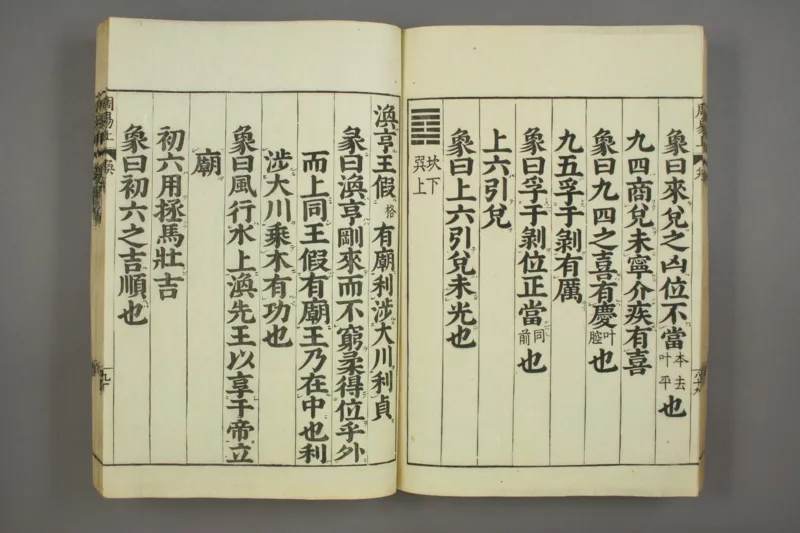 象曰來兌之凶位不當本去叶平也
九四商兌未寧介疾有喜
象曰九四之喜有慶叶腔也
九五孚于剝有厲
象曰孚于剝位正當同前也
上六引兌
象曰上六引兌未光也
坎下巽上
渙亨王假格有廟利涉大川利貞
彖曰渙亨剛來而不窮柔得位乎外
而上同王假有廟王乃在中也利
涉大川乘木有功也
象曰風行水上渙先王以享于帝立
廟
初六用拯馬壯吉
象曰初六之吉順也